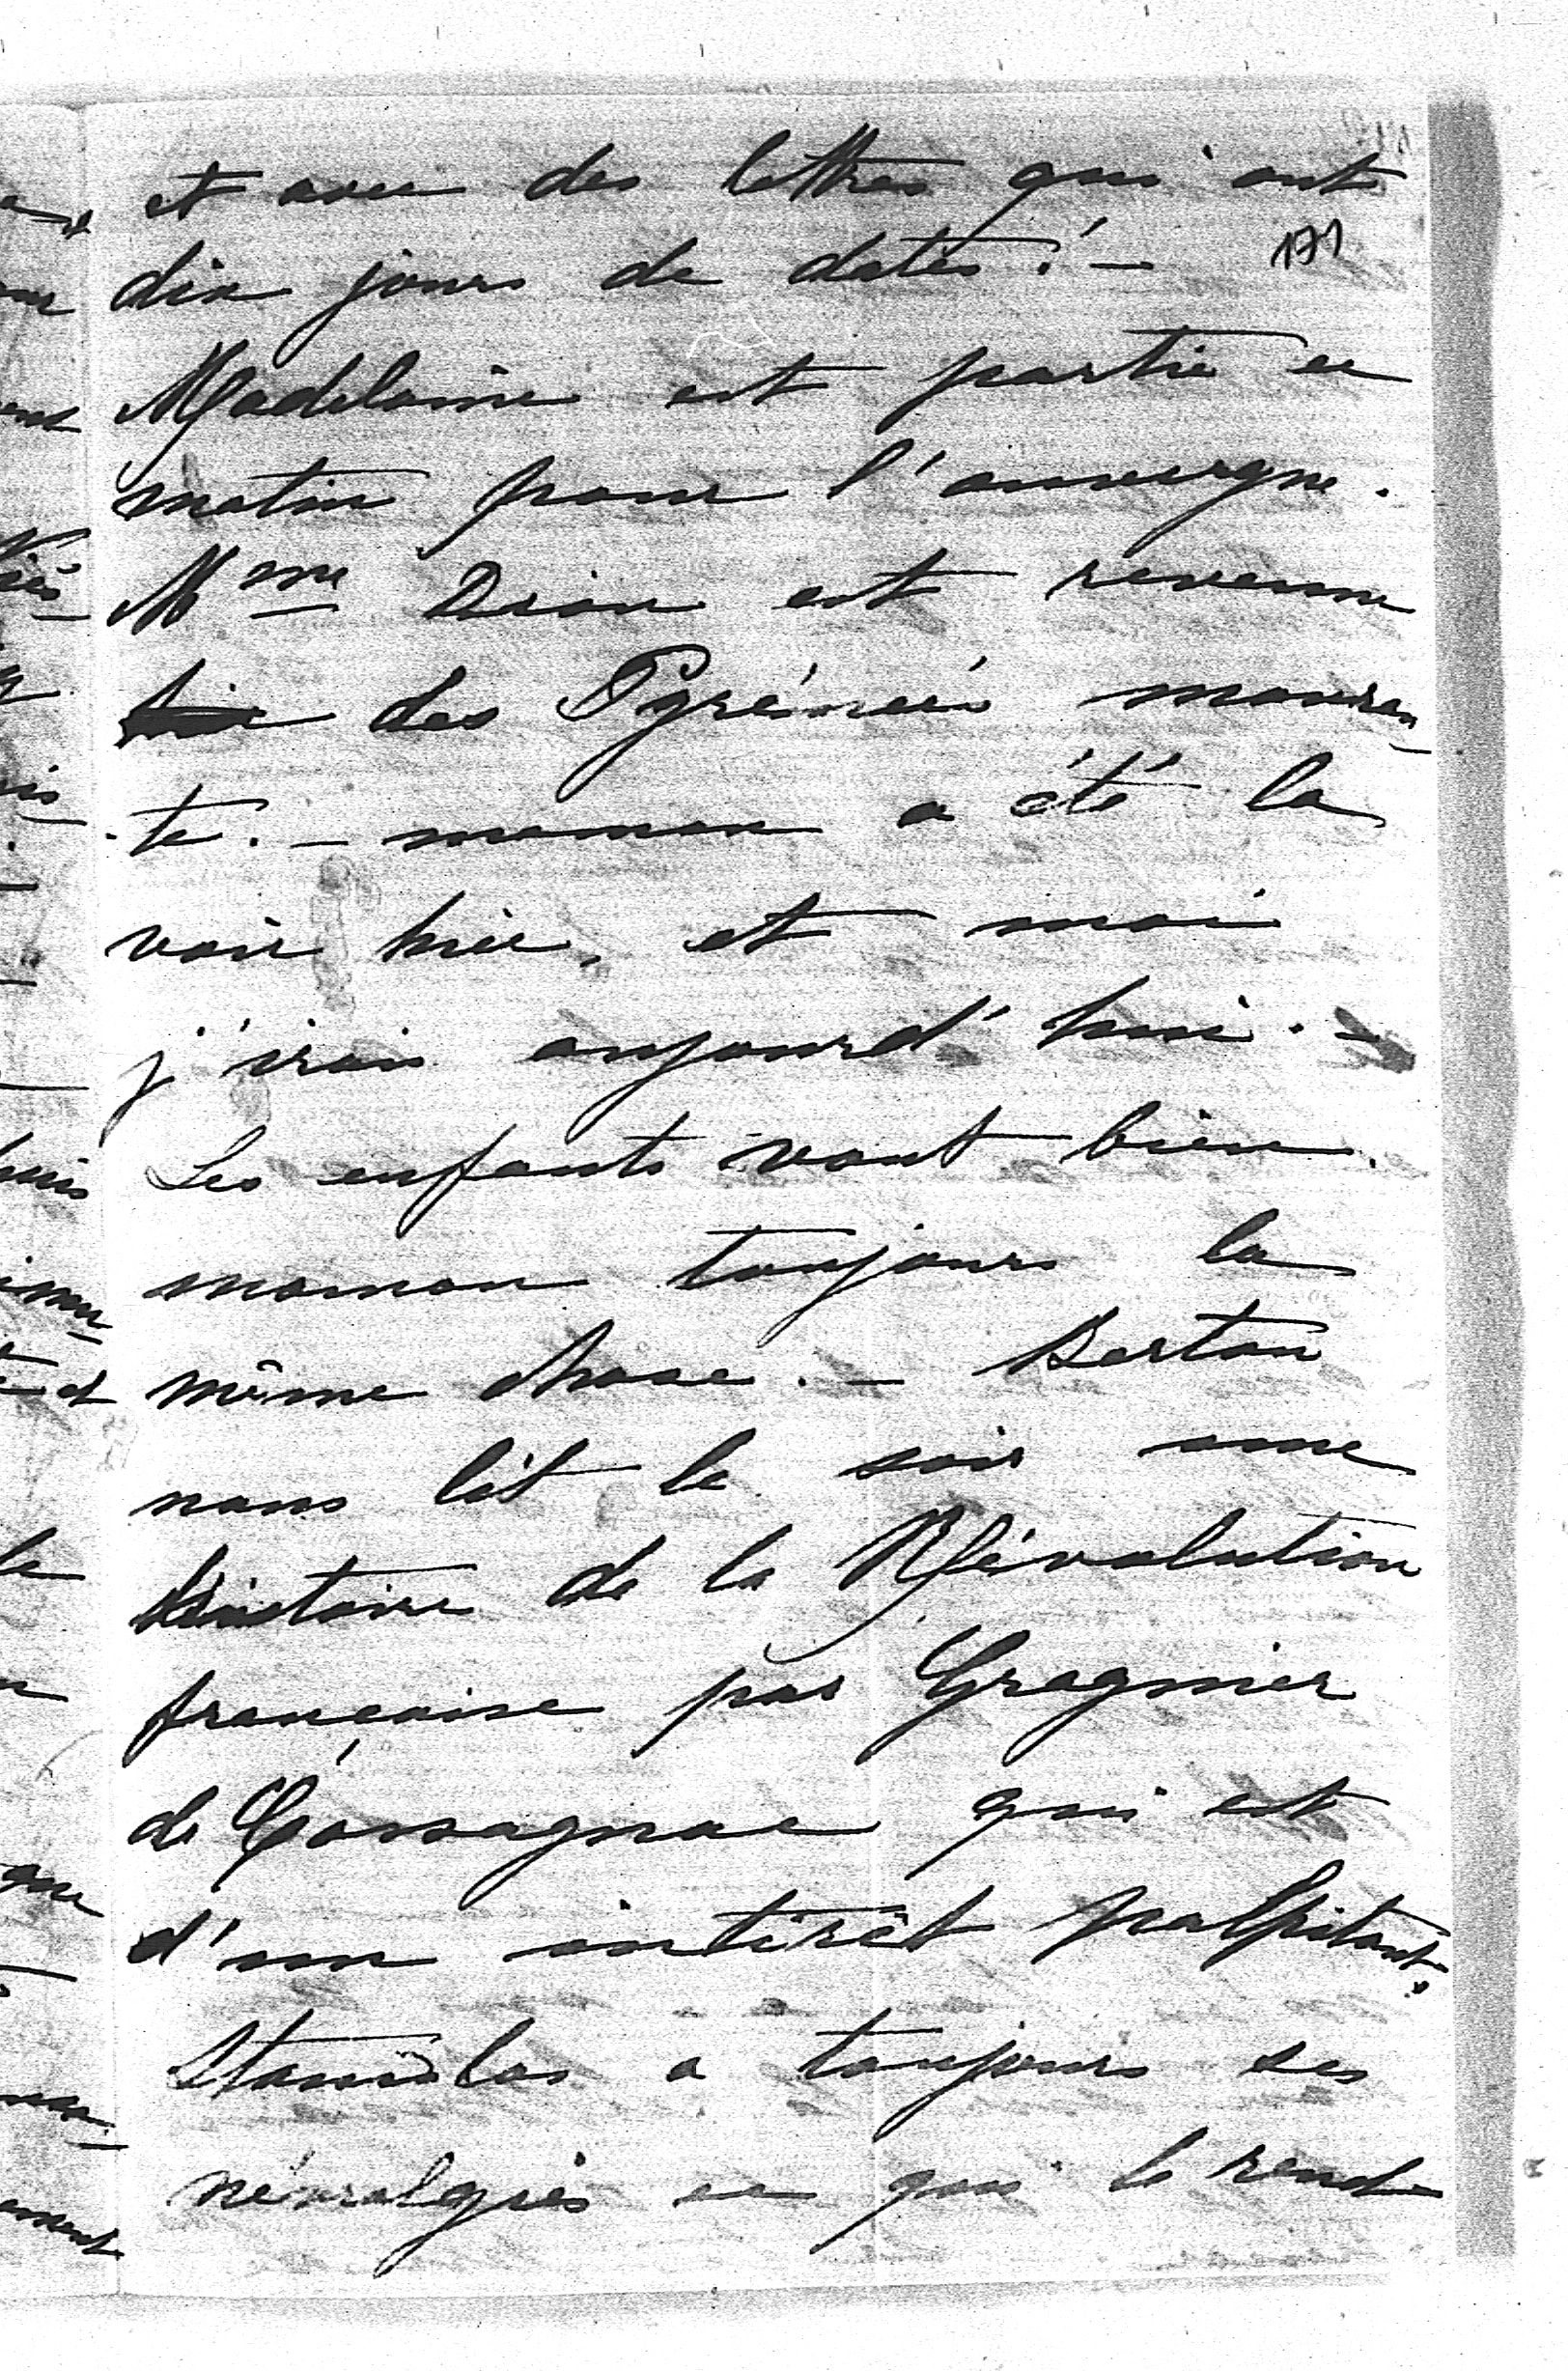 et avec des lettres qui ont
171
dix jours de dates! –
Madeleine est partie ce
matin pour l'auvergne.
Mme Drion est revenue
des Pyrénées mouran-
-te. – maman a été la
voir hier, et moi
j'irai aujourd'hui. –
Les enfants vont bien.
maman toujours la
même chose. – Berton
nous lit le soir une
histoire de la Révolution
française par Gragnier
de Cassagnac qui est
d'un intérêt palpitant.
Stanislas a toujours ses
névralgies ce qui le rend